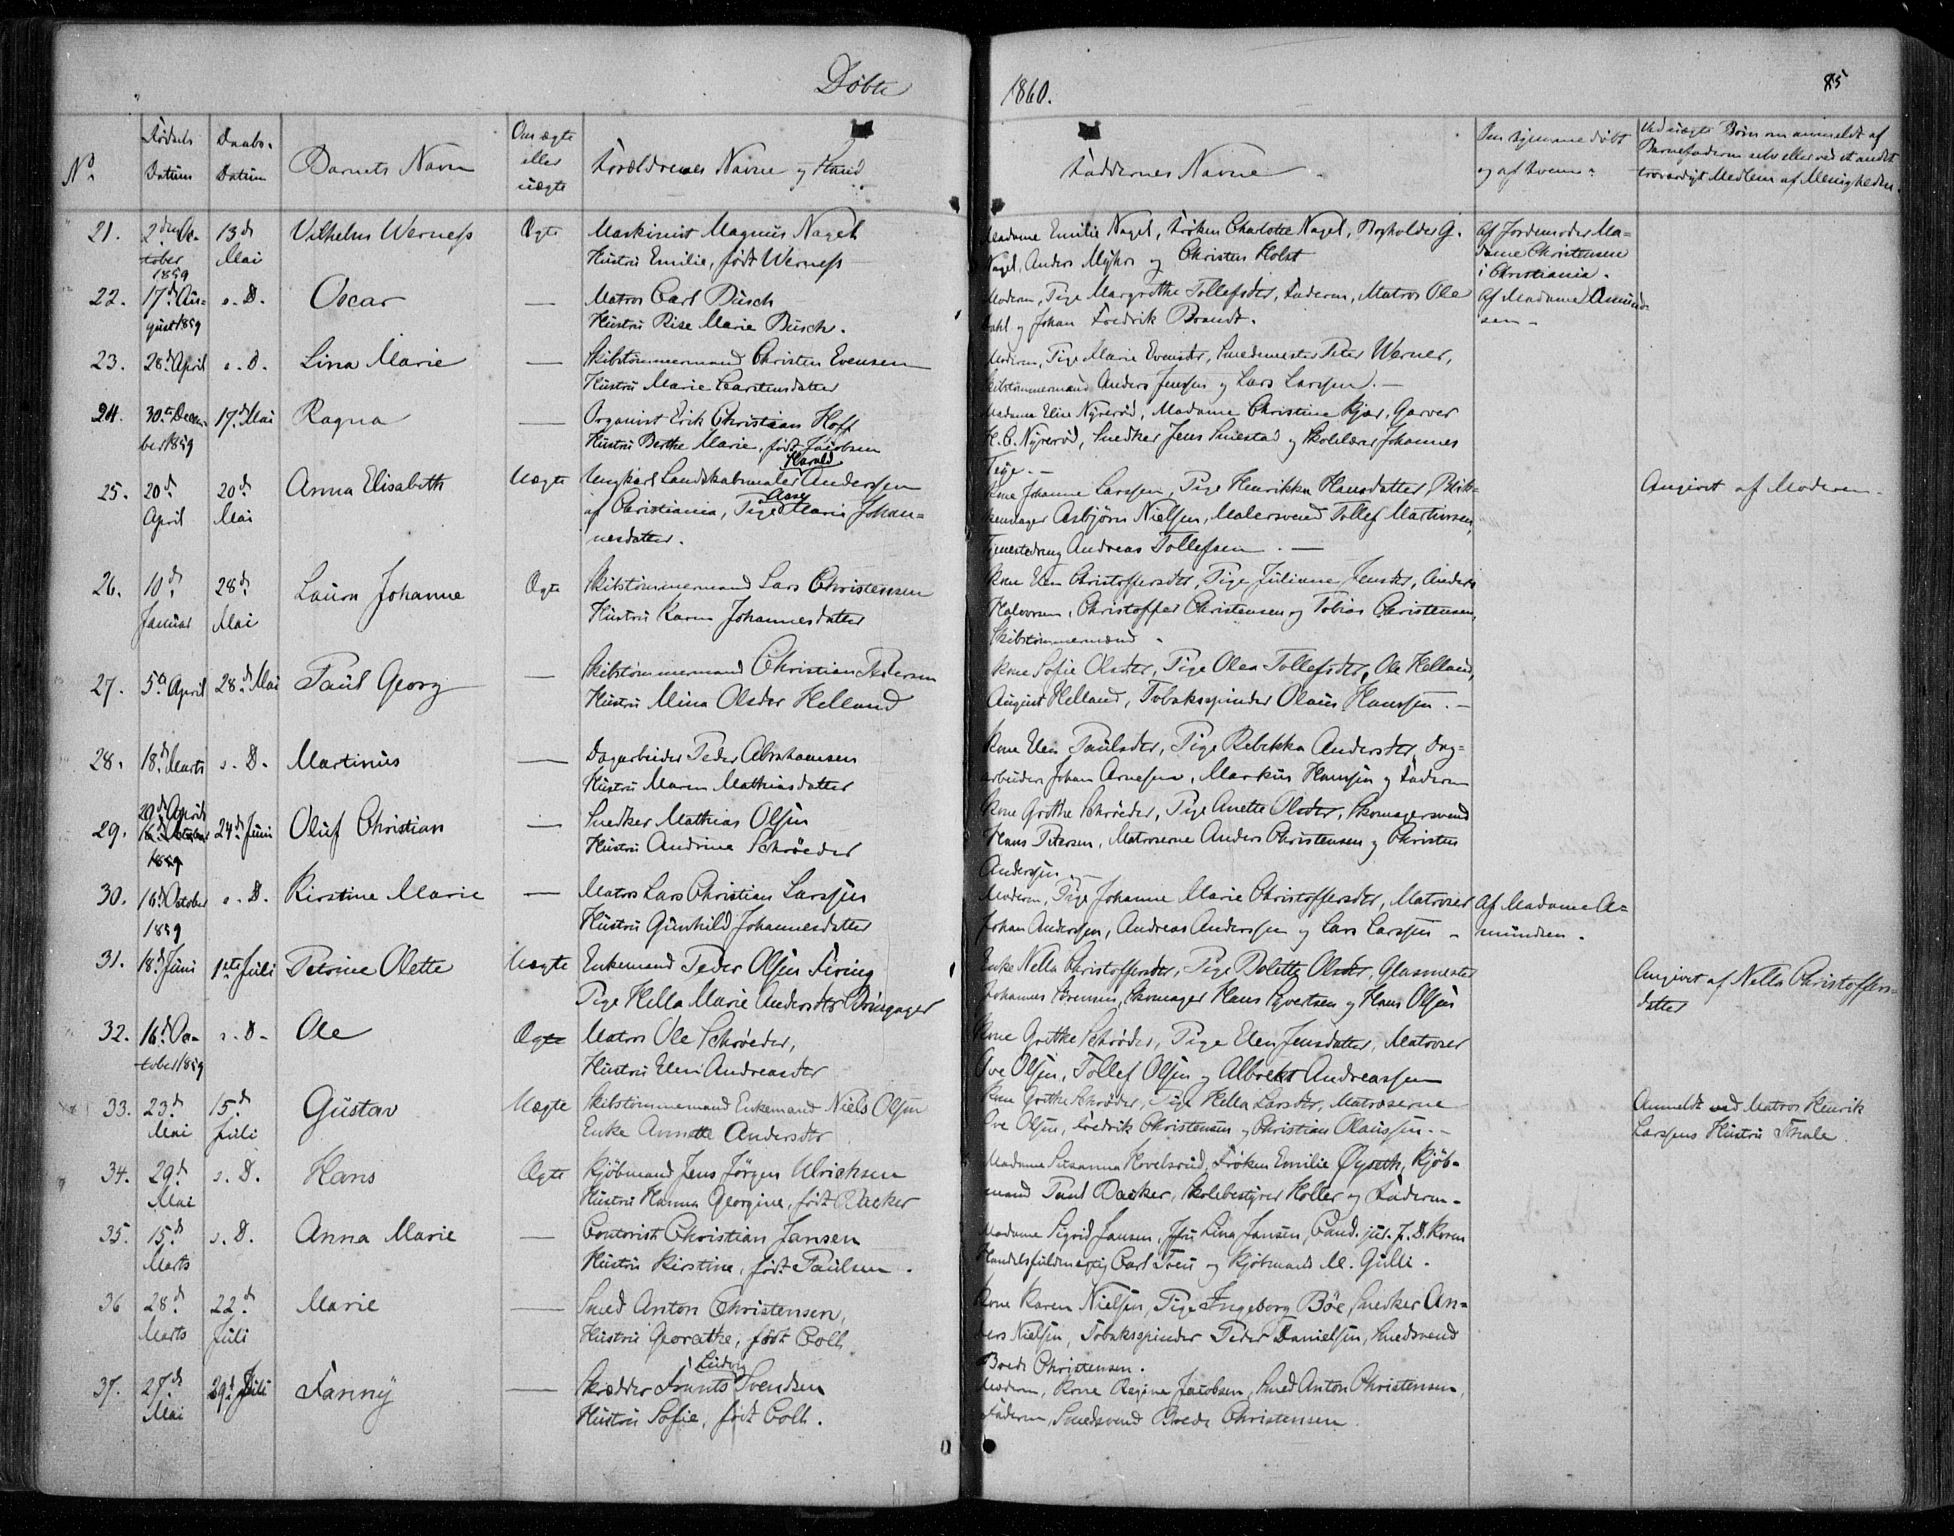 Døbte
1860.
85
No.
Fødsels Datum
Daabs-Datum
Barnets Navn
Om ægte eller uægte
Forældrenes Navne og Stand
Faddernes Navne
Om hjemme døbt og af hvem
Ved uægte Børn om anmeldt af Barnefaderen selv eller ved et andet troværdigt Medlem af Menigheden.
21. 2den October 1859 13de Mai Vilhelm Werness Ægte Maskinist Magnus Nagel
Hustru Emilie, født Werness
Madame Emilie Nagel, Frøken Charlotte Nagel, Bogholder G.
Nagel, Anders Myhre og Christen Holst
Af Jordemoder Ma-
dame Christensen
i Christiania.
22. 17de August 1859 s. D. Oscar — Matros Carl Busch
Hustru Rise Marie Busch.
Moderen, Pige Margrethe Tollefsdtr, Faderen, Matros Ole
Dahl og Johan Fredrik Brandt.
Af Madame Amund-
sen
23. 28de April s. D. Lina Marie — Skibstømmermand Christen Evensen
Hustru Marie Carstensdatter
Moderen, Pige Marie Evensdtr, Smedemester Peter Werner,
Skibstømmermand Anders Jensen og Lars Larssen. —
24. 30te December 1859 17de Mai Ragna — Organist Erik Christian Hoff
Hustru Berthe Marie, født Jacobsen
Madame Elise Nyrerød, Madame Christine Kjær, Garver
H. C. Nyrerød, Snedker Jens Smestad og Skolelærer Johannes
Teye. —
25. 20de April 20de Mai Anna Elisabeth Uægte Ungkarl Landskabsmaler Harald Anderssen
af Christiania, Pige Aasse Marie Johan-
nesdatter.
Kone Johanne Larssen, Pige Henrikka Hansdatter, Blik-
kenslager Asbjørn Nielsen, Malersvend Tollef Martinsen,
Tjenestedreng Andreas Tollefsen. —
Angivet af Moderen.
26. 10de Januar 28de Mai Laura Johanne Ægte Skibstømmermand Lars Christensen
Hustru Karen Johannesdatter
Kone Elen Christoffersdtr, Pige Juliane Jensdtr, Anders
Halvorsen, Christoffer Christensen og Tobias Christensen,
Skibstømmermænd.
27. 5te April 28de Mai Paul Georg — Skibstømmermand Christian Pedersen
Hustru Mina Olsdtr Helland
Kone Sofie Olsdtr, Pige Olea Tollefsdtr, Ole Helland,
August Helland, Tobaksspinder Olaus Hanssen. —
28. 18de Marts s. D. Martinus — Dagarbeider Peder Abrahamsen
Hustru Maren Mathiasdatter
Kone Elen Paulsdtr, Pige Rebekka Andersdtr, Dag-
arbeider Johan Arnesen, Markus Hanssen og Faderen
29. 29de April 16de October 1859 24de Juni Oluf Christian — Snedker Mathias Olsen
Hustru Andrine Schrøeder
Kone Grethe Schrøeder, Pige Anette Olsdtr, Skomagersvend
Hans Petersen, Matroserne Anders Christensen og Christen
Andersen.
30. 16de October 1859 s. D. Kirstine Marie — Matros Lars Christian Larssen
Hustru Gunhild Johannesdatter
Moderen, Pige Johanne Marie Christoffersdtr, Matroser
Johan Anderssen, Andreas Anderssen og Lars Larssen
Af Madame A-
mundsen.
31. 18de Juni 1ste Juli Petrine Olette Uægte Enkemand Peder Olsen Firing
Pige Hella Marie Andersdtr Bringager
Enke Nella Christoffersdtr, Pige Bolette Olsdtr, Glasmester
Johannes Sørensen, Skomager Hans Syvertsen og Hans Olsen
Angivet af Nella Christoffers-
datter
32. 16de October 1859 s. D. Ole Ægte Matros Ole Schrøeder,
Hustru Elen Andreasdtr
Kone Grethe Schrøder, Pige Elen Jensdatter, Matroser
Ove Olsen, Tollef Olsen og Albrekt Andreassen
33. 23de Mai 15de Juli Gustav Uægte Skibstømmermand Enkemand Niels Olsen
Enke Annette Andersdtr
Kone Grethe Schrøder, Pige Hella Larsdtr, Matroserne
Ove Olsen, Fredrik Christensen og Christian Olaussen. —
Anmeldt ved Matros Henrik
Larssens Hustru Thale.
34. 29de Mai s. D. Hans Ægte Kjøbmand Jens Jørgen Ulrichsen
Hustru Hanna Georgine, født Backer
Madame Susanna Hovelsrud, Frøken Emilie Øyseth, Kjøb-
mand Paul Backer, Skolebestyrer Holler og Faderen
35. 15de Marts s. D. Anna Marie — Contorist Christian Jansen
Hustru Kirstine, født Paulsen.
Madame Sigrid Jansen, Jfru Lina Jansen, Cand. jur. J. D. Koren
Handelsfuldmægtig Carl Tveit og Kjøbmand M. Gulli.
36 28de Marts 22de Juli Marie — Smed Anton Christensen,
Hustru Georethe, født Coll
Kone Karen Nielsen, Pige Ingeborg Bøe, Snedker An-
ders Nielsen, Tobaksspinder Peder Danielsen, Smedsvend
Brede Christensen.
37. 27de Mai 29de Juli Fanny — Skrædder Frants Ludvig Svendsen
Hustru Sofie, født Coll.
Moderen, Kone Regine Jacobsen, Smed Anton Christensen,
Faderen, Smedsvend Brede Christensen.